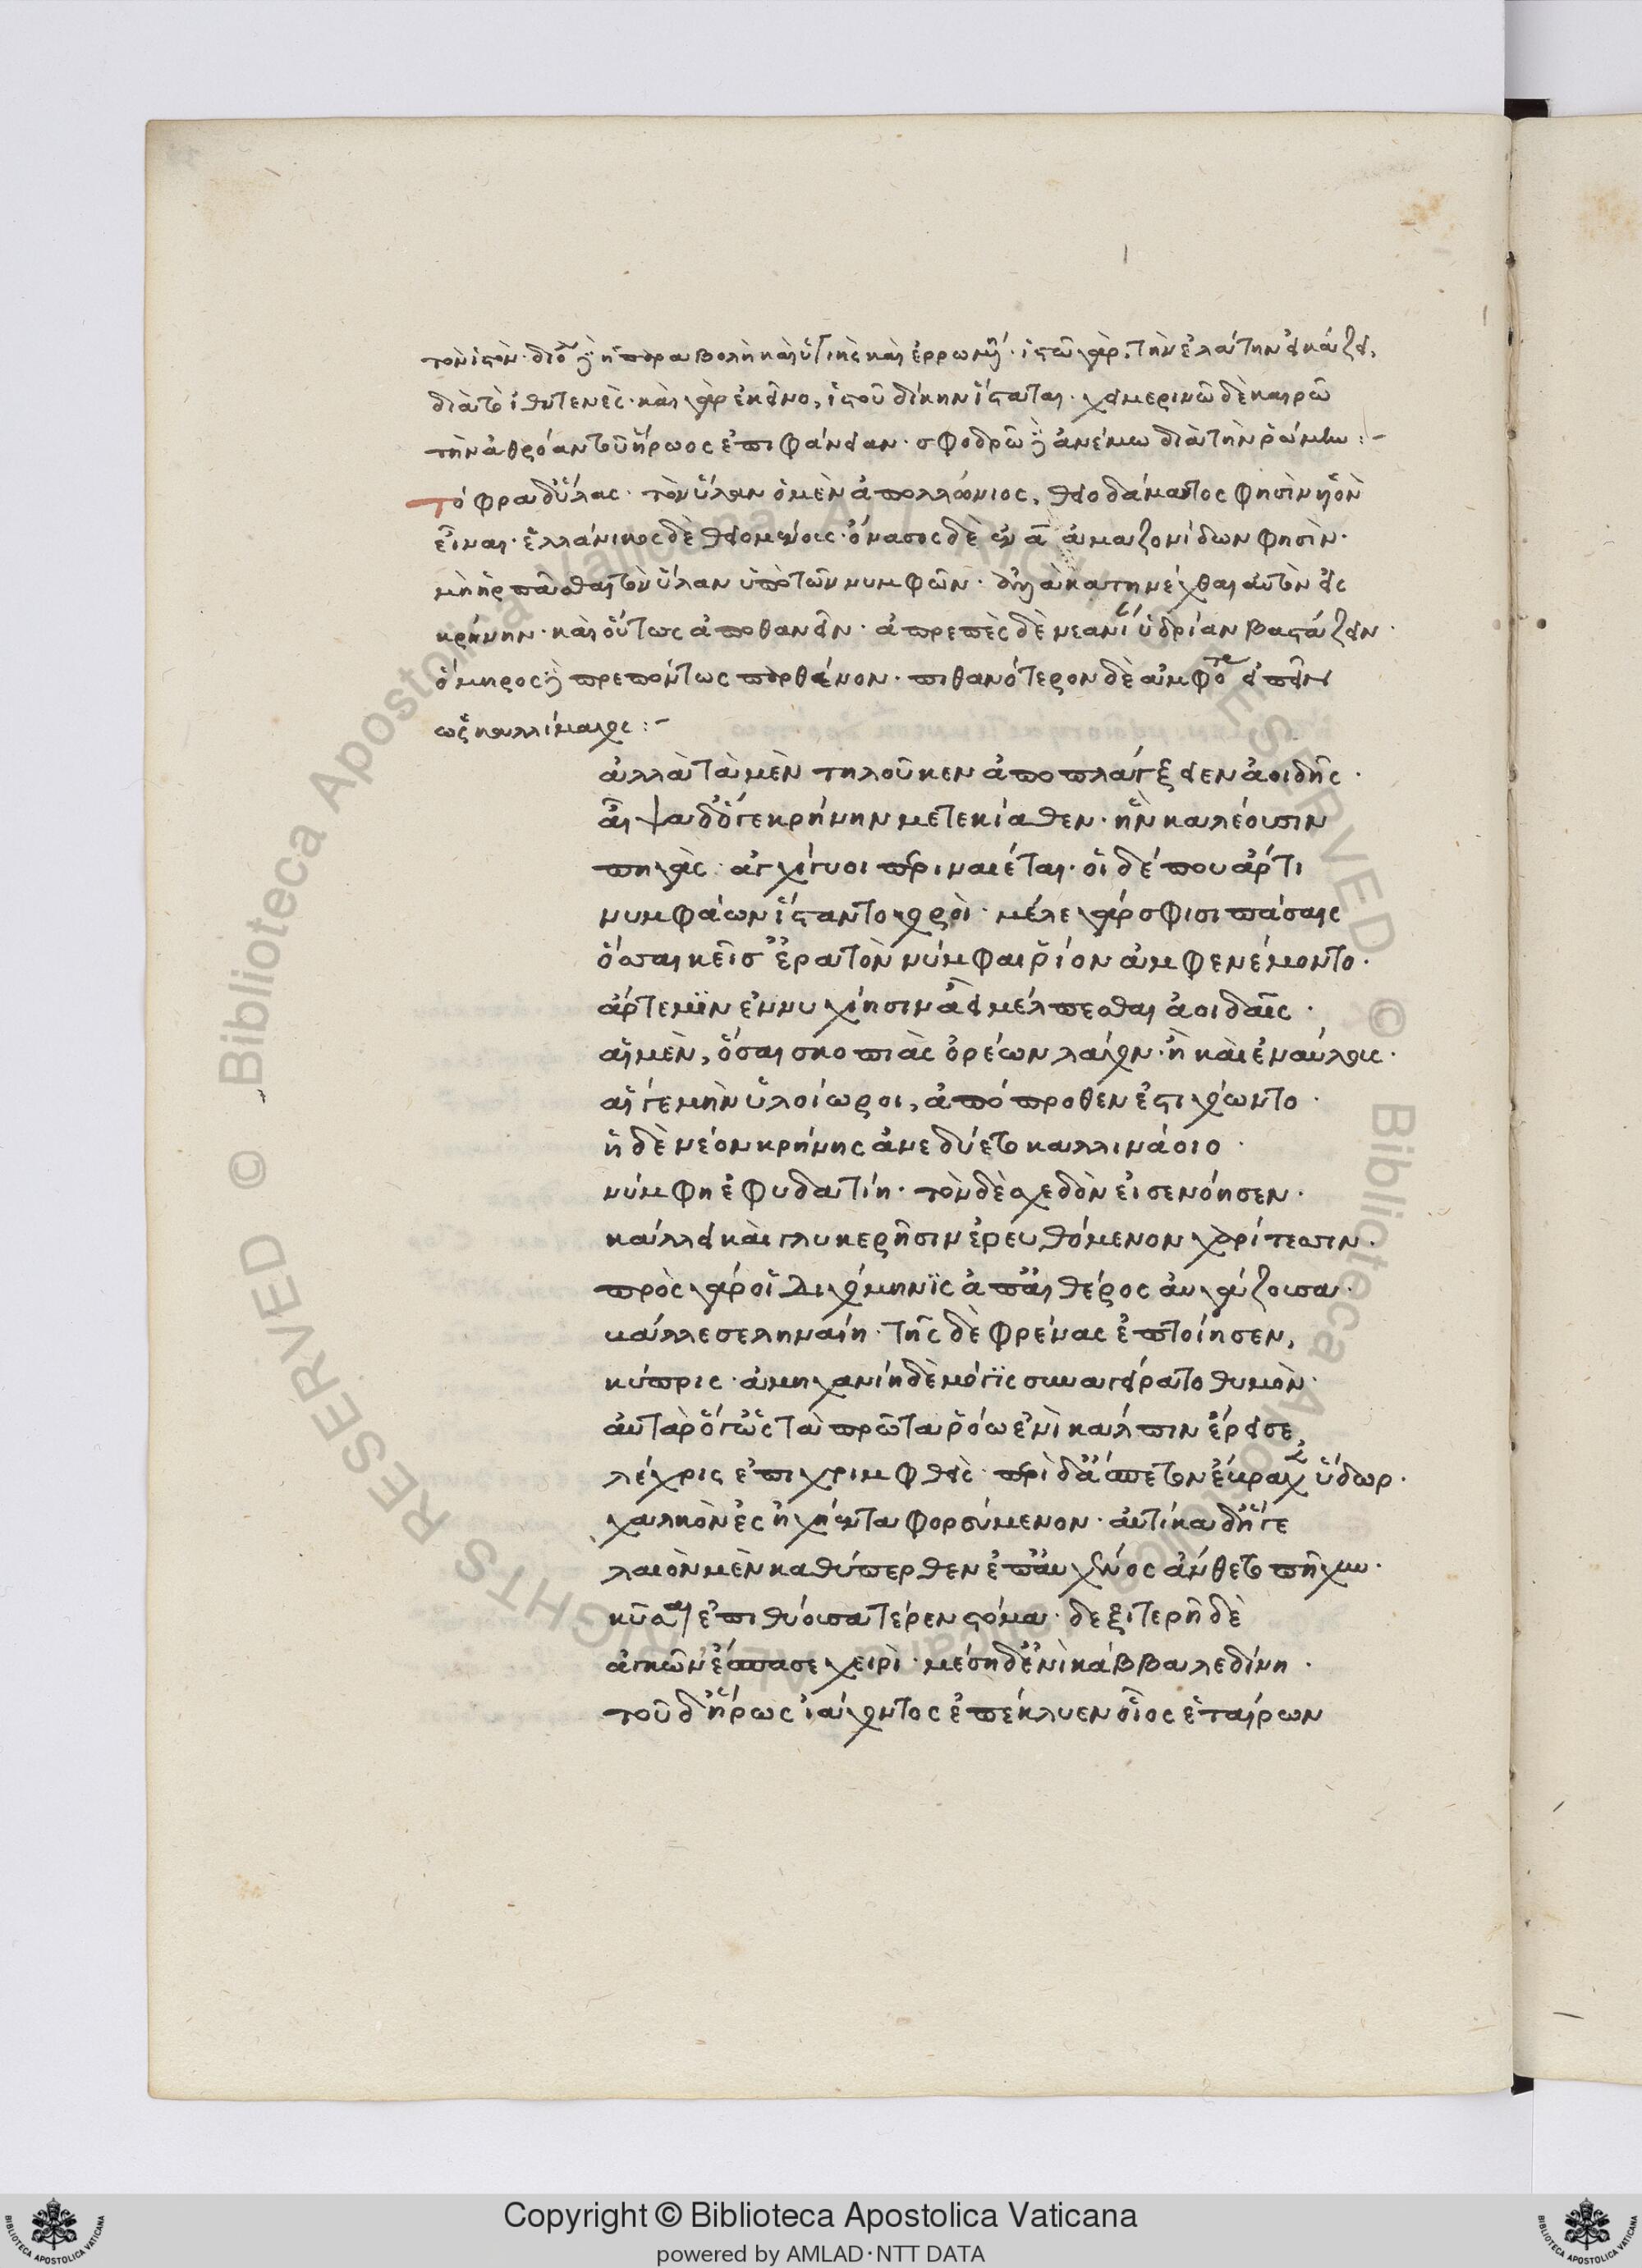 τὸν ἱστὸν. διὸ καὶ ἡ παραβολὴ καὶ ὑγιὴς καὶ ἐρρωμένη. ἱστῷ γὰρ, τὴν ἐλάτην εἰκάζει,
διὰ τὸ ἰθυτενές. καὶ γὰρ ἐκεῖνο, ἱστοῦ δίκην ἵσταται. χειμερινῷ δὲ καιρῷ
τὴν ἀθρόαν τοῦ ἥρωος ἐπιφάνειαν. σφοδρῷ καὶ ἀνέμω διὰ τὴν ῥώμην :-
τόφρα δ' ὕλας. τὸν ὕλαν ὁ μὲν ἀπολλώνιος, θειοδάμαντος φησὶν υἱὸν
εἶναι. ἑλλάνικος δὲ θειομένους. ὄνασος δὲ ἐν α ἀμαζονίδων φησὶν.
μὴ ἡρπᾶσθαι τὸν ὕλαν ὑπὸ τῶν νυμφῶν. ἀλλὰ κατηνέχθαι αὐτὸν εἰς
κρήνην. καὶ οὕτως ἀποθανεῖν. ἀπρεπὲς δὲ νεανίᾳ ὑδρίαν βαστάζειν.
ὅμηρος καὶ πρεπόντως παρθένον. πιθανότερον δὲ ἀμφορέα εἰπεῖν
ὡς καλλίμαχος :-
ἀλλὰ τὰ μὲν τηλοῦ κεν ἀποπλάγξειεν ἀοιδῆς.
αἶψα δ' ὅγε κρήνην μετεκίαθεν. ἣν καλέουσιν
πηγὰς ἀγχίγυοι περιναιέται. οἱ δέ που ἄρτι
νυμφάων ἵσταντο χοροὶ. μέλε γάρ σφισι πάσαις
ὅσαι κεῖσ' ἐρατὸν νύμφαι ῥίον ἀμφενέμοντο.
ἄρτεμιν ἐννυχίησιν ἀεὶ μέλπεσθαι ἀοιδαῖς.
αἱ μὲν, ὅσαι σκοπιὰς ὀρέων λάχον. ἢ καὶ ἐναύλους.
αἵγε μὴν ὑλοίωροι, ἀπόπροθεν ἐστιχόωντο.
ἡ δὲ νέον κρήνης ἀνεδύετο καλλινάοιο.
νύμφη ἐφυδατίη. τὸν δὲ σχεδὸν εἰσενόησεν.
κάλλει καὶ γλυκερῆσιν ἐρευθόμενον χαρίτεσσιν.
πρὸς γάρ οἱ διχόμηνις ἀπ' αἰθέρος αὐγάζουσα.
κάλλε σεληναίη. τῆς δὲ φρένας ἐπτοίησεν,
κύπρις. ἀμηχανίη δὲ μόγις συναγείρατο θυμὸν.
αὐτὰρ ὅγ' ὡς τὰ πρῶτα ῥόω ἐνὶ κάλπιν ἔρεισε,
λέχρις ἐπιχριμφθεὶς. περὶ δ' ἄσπετον ἔβραχεν ὕδωρ.
χαλκὸν ἐς ἠχήεντα φορεύμενον. αὐτίκα δ' ἥγε
λαιὸν μὲν καθύπερθεν ἐπ' αὐχένος ἄνθετο πῆχυν.
κῦσαι ἐπιθύουσα τέρεν στόμα. δεξιτερῆ δὲ
ἀγκῶν' ἔσπασε χειρὶ. μέση δ' ἐνὶ κάββαλε δίνη.
τοῦ δ' ἥρως ἰάχοντος ἐπέκλυεν οἶος ἑταίρων
Copyright © Biblioteca Apostolica Vaticana
powered by AMLAD·NTT DATA